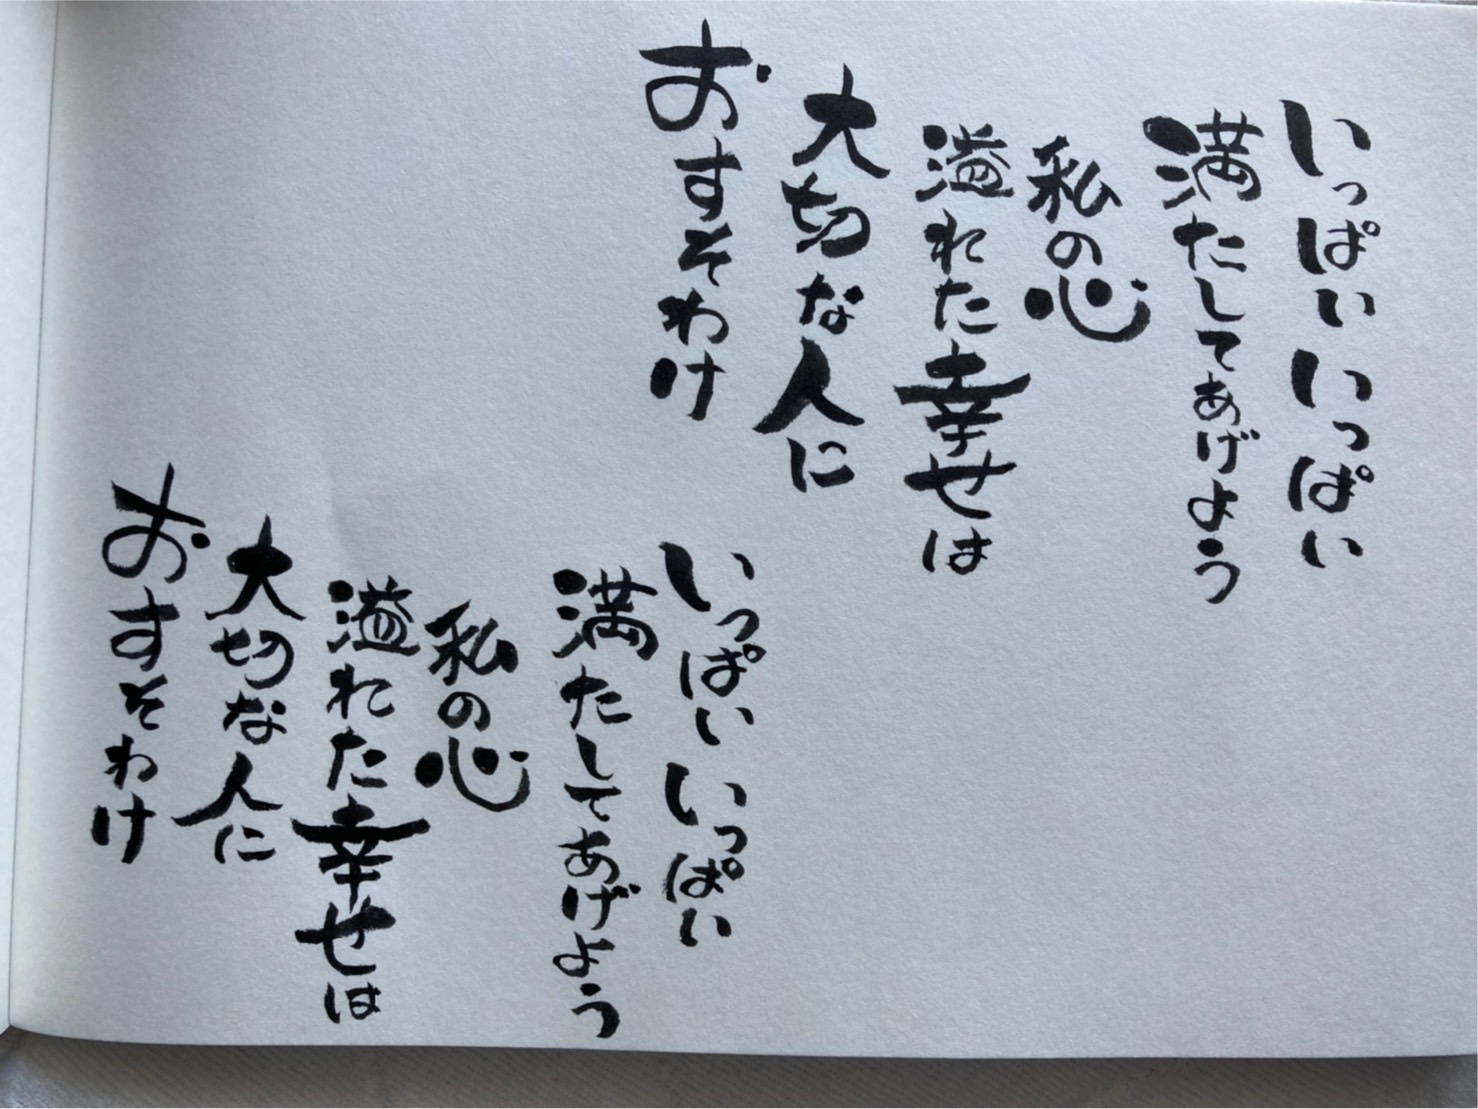 いっぱいいっぱい
満たしてあげよう
私の心
溢れた幸せは
大切な人に
おすそわけ
いっぱいいっぱい
満たしてあげよう
私の心
溢れた幸せは
大切な人に
おすそわけ